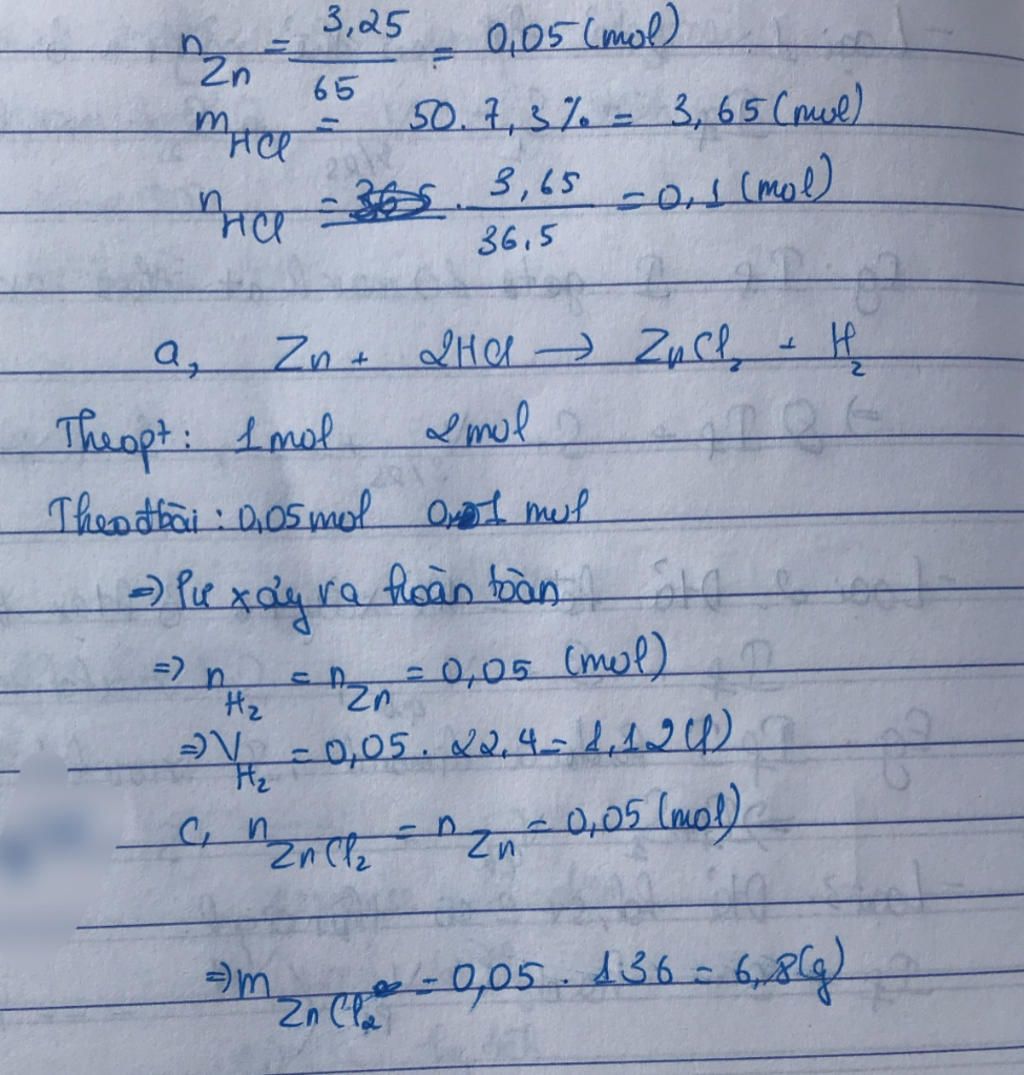 n Zn = 3,25 / 65 = 0,05 (mol)
m HCl = 50. 7,3% = 3,65 (mol)
n HCl = . 3,65 / 36,5 = 0,1 (mol)
a, Zn + 2HCl → ZnCl₂ + H₂
Theo pt: 1 mol 2 mol
Theo đbài: 0,05 mol mol
=> Pư xảy ra hoàn toàn
=> n H₂ = n Zn = 0,05 (mol)
=> V H₂ = 0,05 . 22,4 = 1,12 (l)
c, n ZnCl₂ = n Zn = 0,05 (mol)
=> m ZnCl₂ = 0,05 . 136 = 6,8 (g)